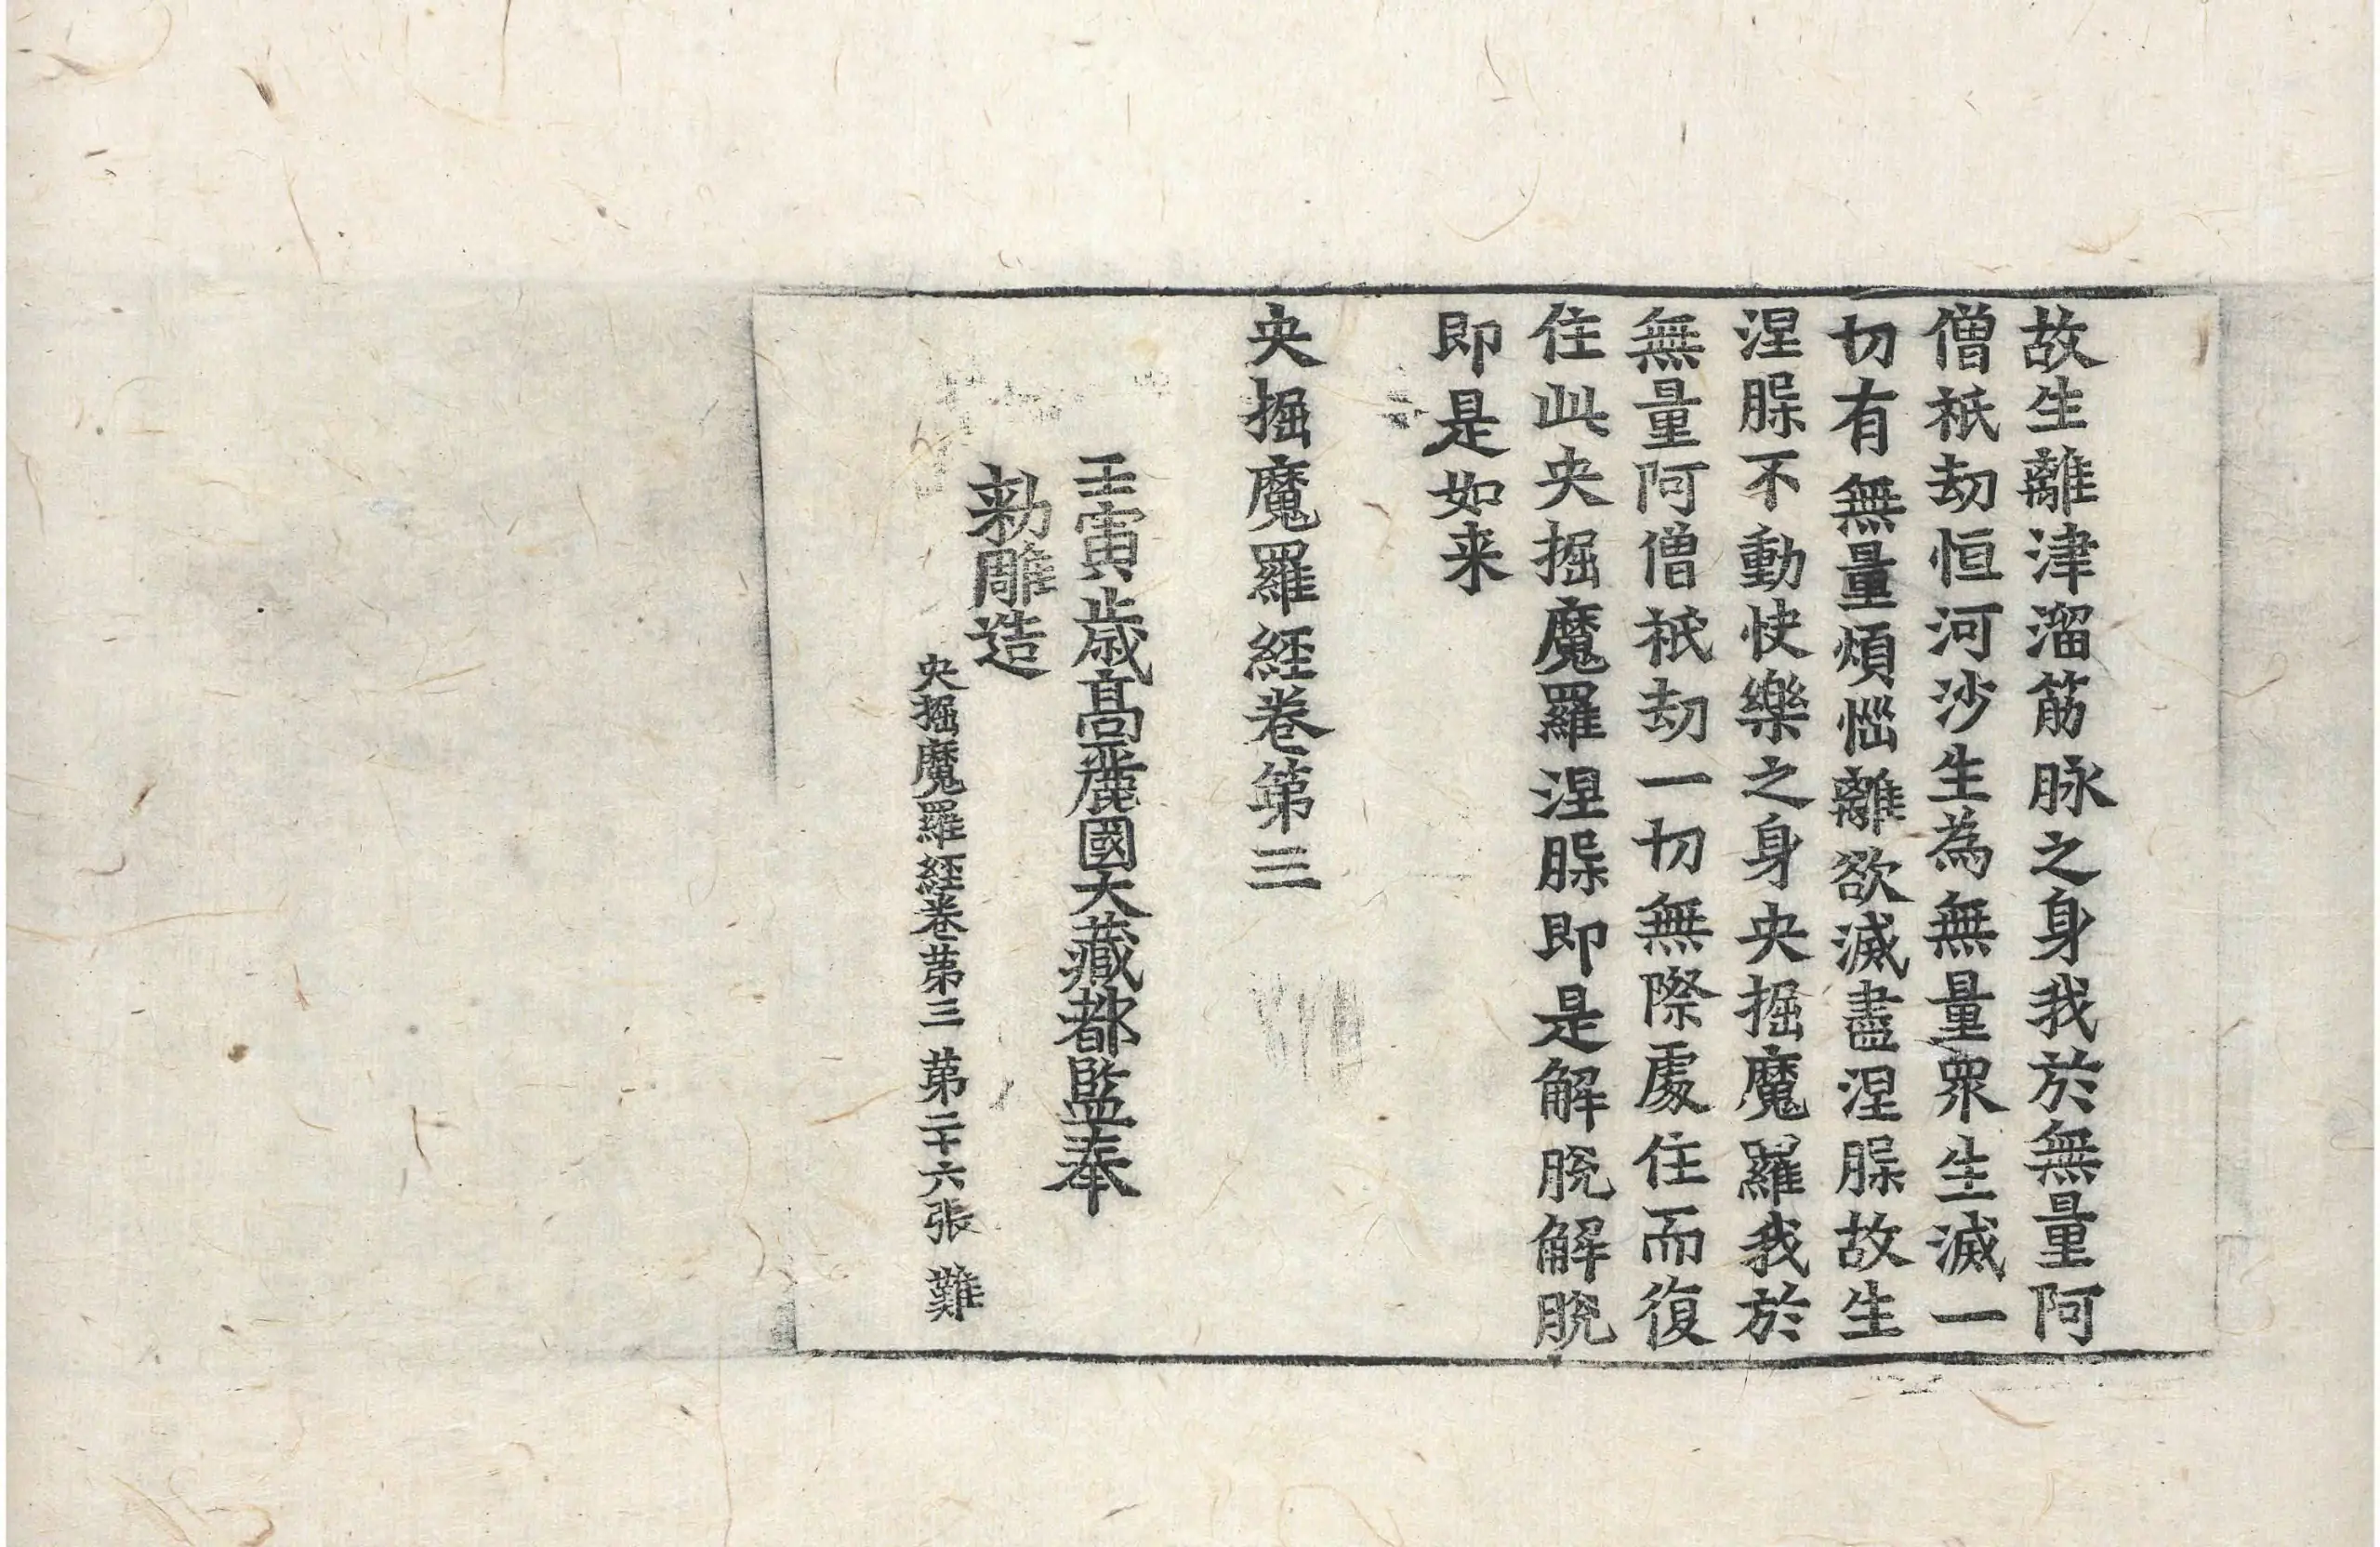 故生離津溜筋脉之身我於無量阿
僧祇劫恒河沙生為無量眾生滅一
切有無量煩惱離欲滅盡涅槃故生
涅槃不動快樂之身央掘魔羅我於
無量阿僧祇劫一切無際處住而復
住此央掘魔羅涅槃即是解脫解脫
即是如来
央掘魔羅經卷第三
壬寅歲高麗國大藏都監奉
勑雕造
央掘魔羅經卷第三 第二十六張 難